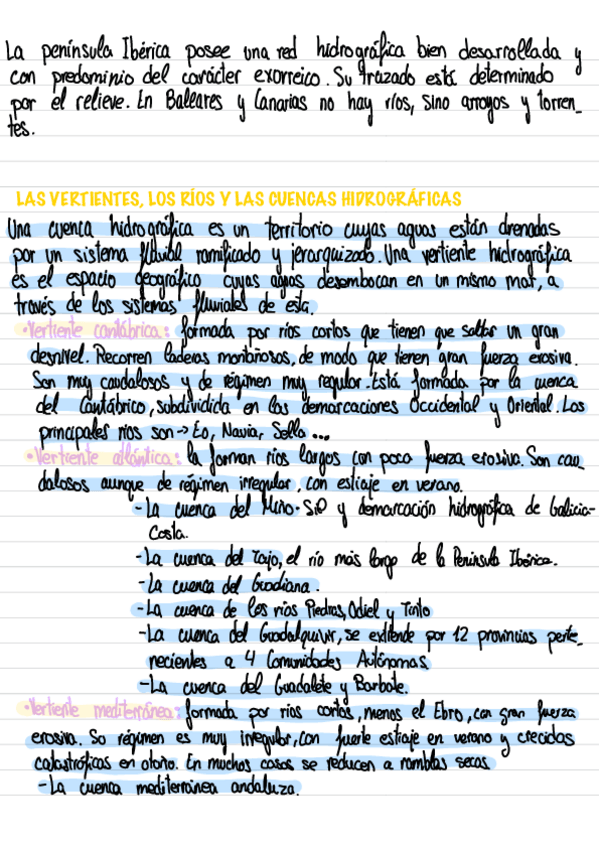 La península Ibérica posee una red hidrográfica bien desarrollada y
con predominio del carácter exorreico. Su trazado está determinado
por el relieve. En Baleares y Canarias no hay ríos, sino arroyos y torren_
tes.
LAS VERTIENTES, LOS RÍOS Y LAS CUENCAS HIDROGRÁFICAS
Una cuenca hidrográfica es un territorio cuyas aguas están drenadas
por un sistema fluvial ramificado y jerarquizado. Una vertiente hidrográfica
es el espacio geográfico cuyas aguas desembocan en un mismo mar, a
través de los sistemas fluviales de esta.
•Vertiente cantábrica: formada por ríos cortos que tienen que saltar un gran
desnivel. Recorren laderas montañosas, de modo que tienen gran fuerza erosiva.
Son muy caudalosos y de régimen muy regular. Está formada por la cuenca
del Cantábrico, subdividida en las demarcaciones Occidental y Oriental. Los
principales ríos son → Eo, Navia, Sella ...
•Vertiente atlántica: la forman ríos largos con poca fuerza erosiva. Son cau_
dalosos aunque de régimen irregular, con estiaje en verano.
-La cuenca del Miño-Sil y demarcación hidrográfica de Galicia-
Costa.
-La cuenca del Tajo, el río más largo de la Península Ibérica.
-La cuenca del Guadiana.
-La cuenca de los ríos Piedras, Odiel y Tinto
-La cuenca del Guadalquivir, se extiende por 12 provincias perte_
necientes a 4 Comunidades Autónomas.
-La cuenca del Guadalete y Barbate.
•Vertiente mediterránea: formada por ríos cortos, menos el Ebro, con gran fuerza
erosiva. Su régimen es muy irregular, con fuerte estiaje en verano y crecidas
catastróficas en otoño. En muchos casos se reducen a ramblas secas.
-La cuenca mediterránea andaluza.